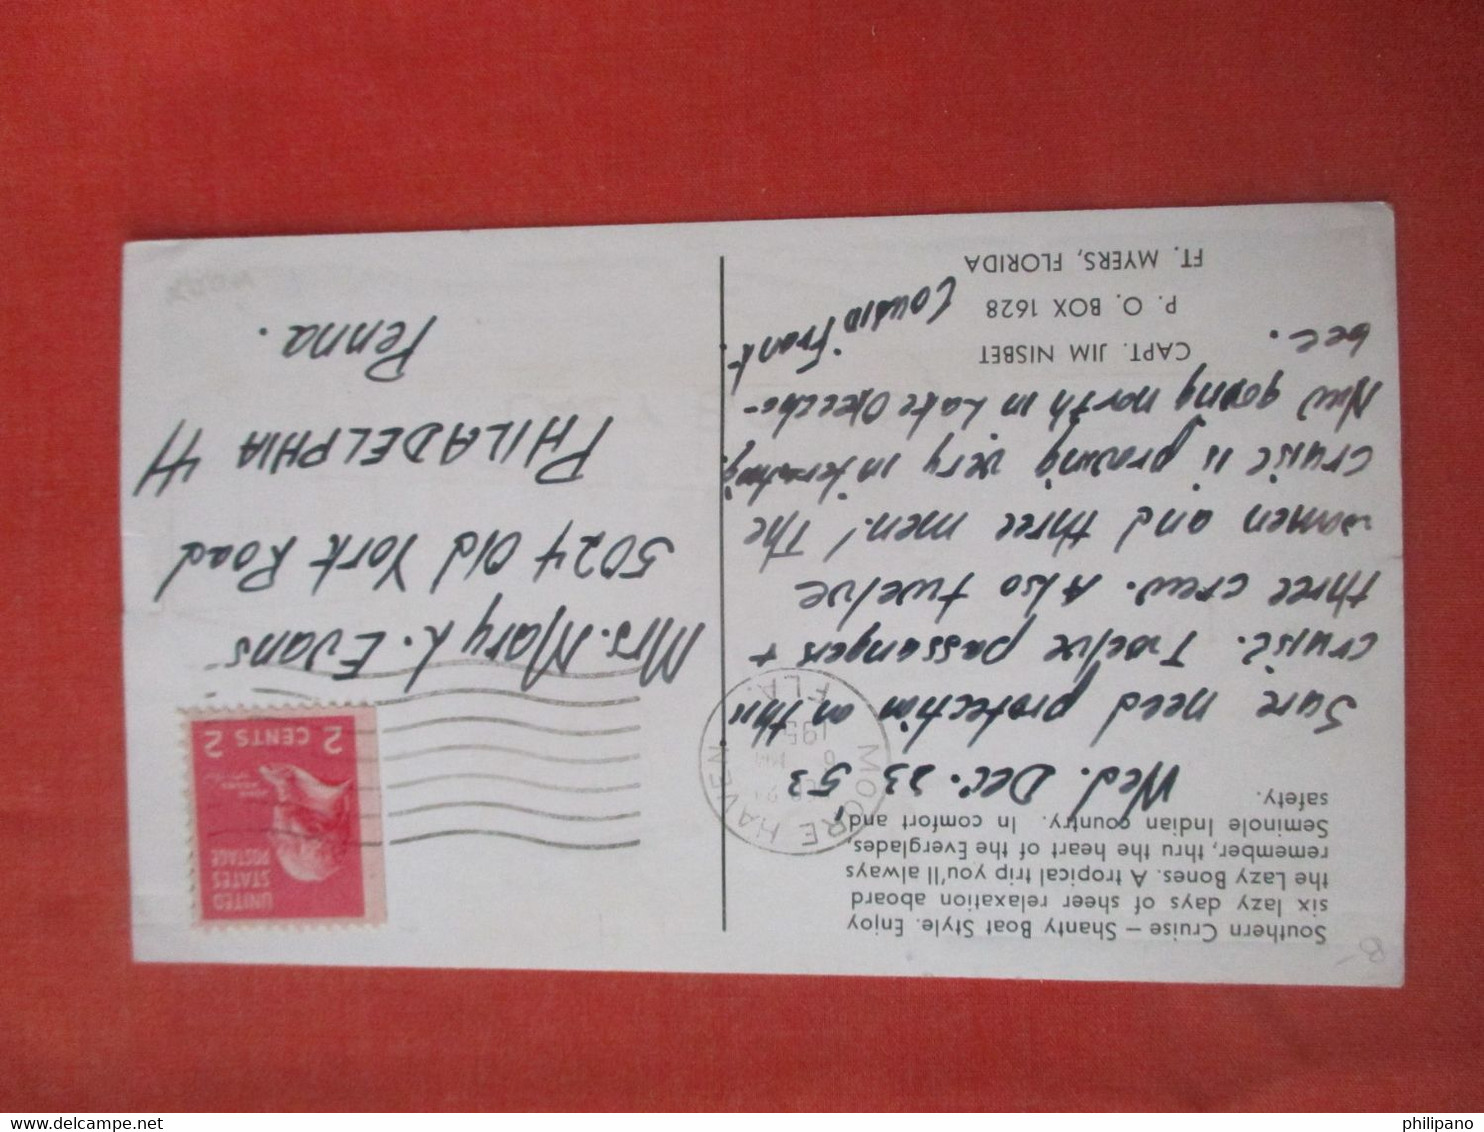 Southern Cruise – Shanty Boat Style. Enjoy
six lazy days of sheer relaxation aboard
the Lazy Bones. A tropical trip you'll always
remember, thru the heart of the Everglades,
Seminole Indian country. In comfort and
safety.
Wed. Dec. 23 '53
Sure need protection on this
cruise. Twelve passengers +
three crew. Also twelve
women and three men! The
cruise is proving very interesting.
Now going north in Lake Okeecho-
bee.
Cousin Frank
CAPT. JIM NISBET
P. O. BOX 1628
FT. MYERS, FLORIDA
MOORE HAVEN
FLA.
UNITED
STATES
POSTAGE
2 CENTS 2
Mrs. Mary L. Evans
5024 Old York Road
PHILADELPHIA 41
Penna.
B-
philipano